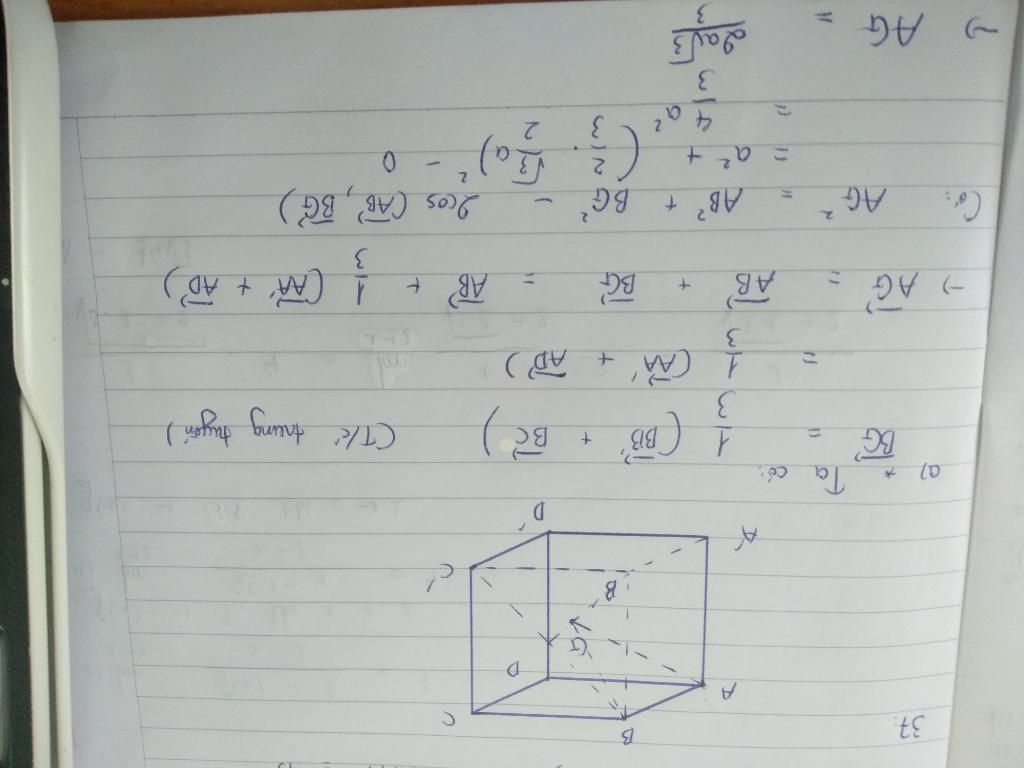 37.
B
C
A
D
G
B'
C'
A'
D'
a) * Ta có:
BG⃗ = 1/3 (BB'⃗ + BC⃗) (T/c' trung tuyến)
= 1/3 (AA'⃗ + AD⃗)
→ AG⃗ = AB⃗ + BG⃗ = AB⃗ + 1/3 (AA'⃗ + AD⃗)
Có: AG² = AB² + BG² - 2cos (AB⃗, BG⃗)
= a² + (2/3 . √3/2 a)² - 0
= 4/3 a²
→ AG = 2a√3/3